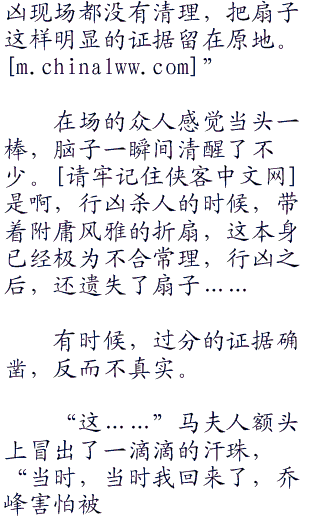 凶现场都没有清理，把扇子
这样明显的证据留在原地。
[m.china1ww.com]”
在场的众人感觉当头一
棒，脑子一瞬间清醒了不
少。[请牢记住侠客中文网]
是啊，行凶杀人的时候，带
着附庸风雅的折扇，这本身
已经极为不合常理，行凶之
后，还遗失了扇子……
有时候，过分的证据确
凿，反而不真实。
“这……”马夫人额头
上冒出了一滴滴的汗珠，
“当时，当时我回来了，乔
峰害怕被